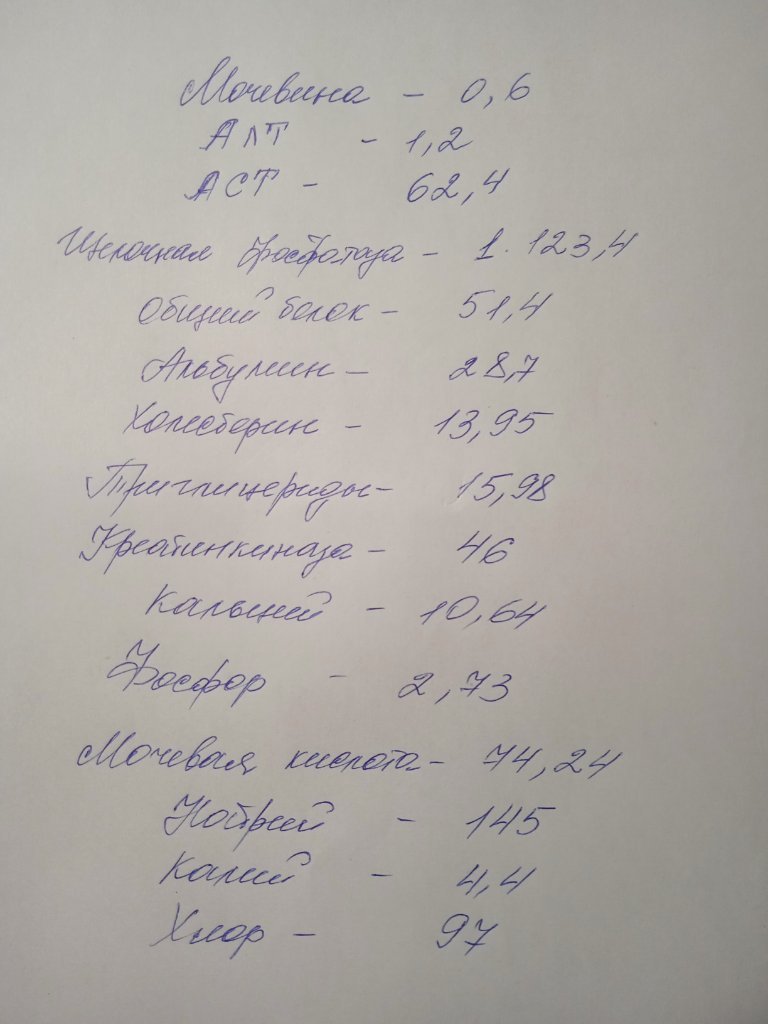 Мочевина - 0,6
АлТ - 1,2
АСТ - 62,4
Щелочная фосфотаза - 1.123,4
Общий белок - 51,4
Альбумин - 28,7
Холестерин - 13,95
Триглицериды - 15,98
Креатинкиназа - 46
Кальций - 10,64
Фосфор - 2,73
Мочевая кислота - 74,24
Натрий - 145
Калий - 4,4
Хлор - 97